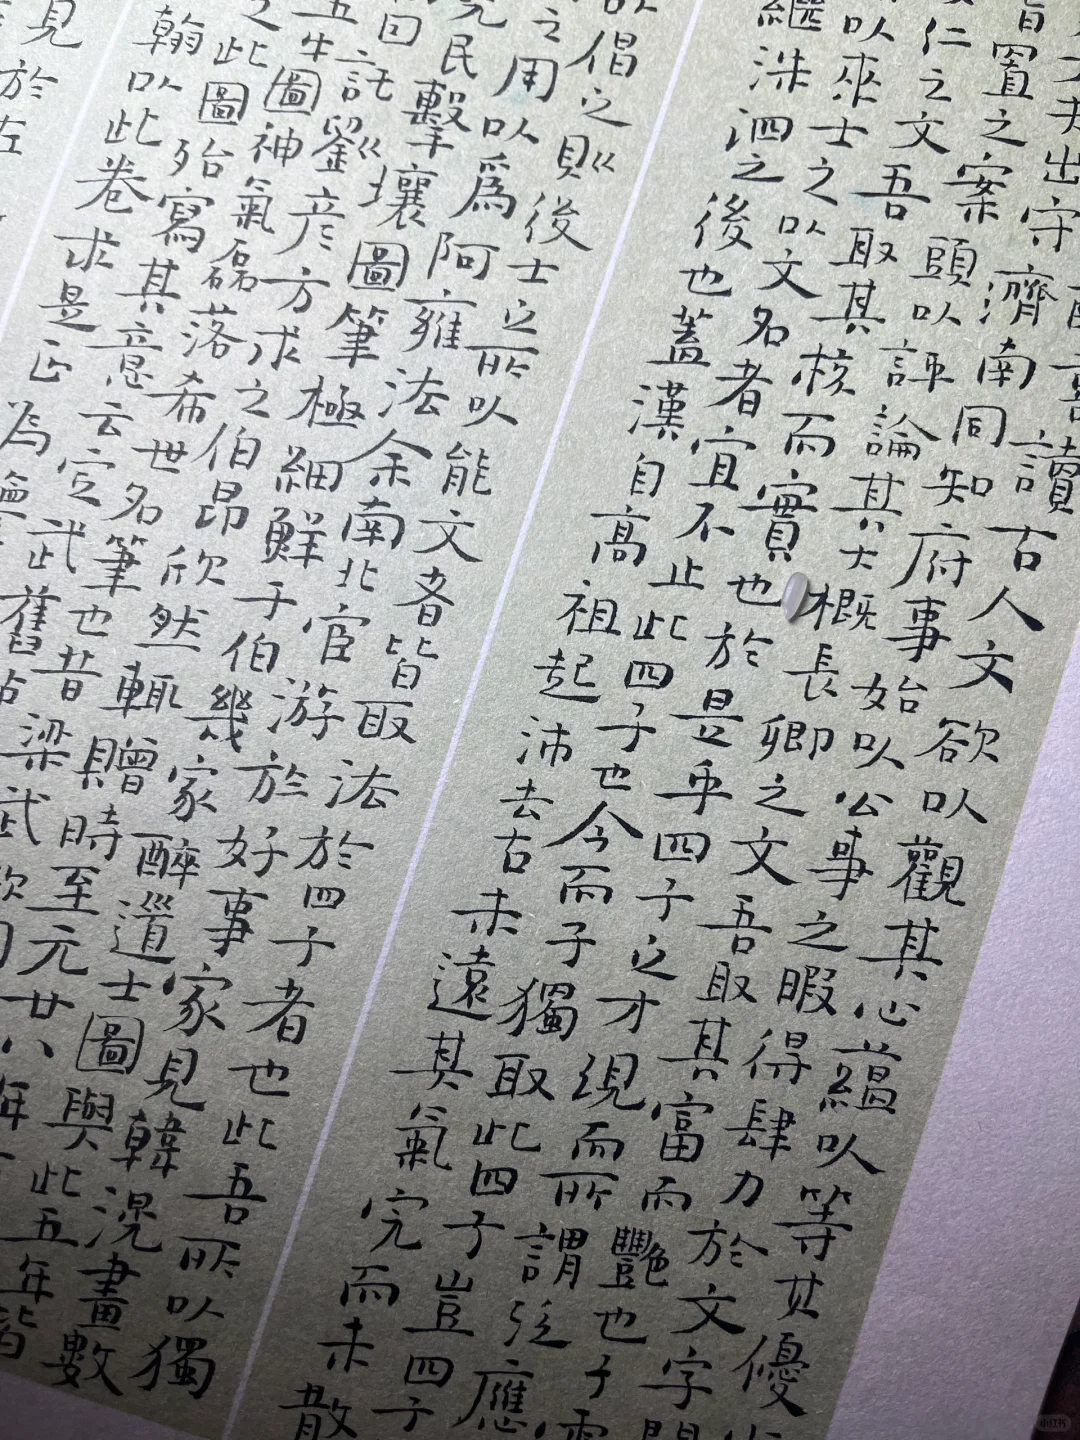 喜讀古人文欲以觀其心蘊以等其優
夫出守濟南同知府事始以公事之暇得肆力於文字間
置之案頭以評論其大概長卿之文吾取其富而艷也子雲
仁之文吾取其核而實也於是乎四子之才現而所謂弦應
以來士之以文名者宜不止此四子也今而子獨取此四子豈四子
繼洙泗之後也蓋漢自高祖起沛去古未遠其氣完而未散
倡之則後士之所以能文者皆取法於四子者也此吾所以獨
之用以爲阿雍法余南北宦游於好事家見韓滉畫數
民擊壤圖筆極細鮮于伯幾家醉道士圖與此五年皆
曰託劉彥方求之伯昂欣然輒贈時至元廿八年
五牛圖神氣磊落希世名筆也昔梁武欲
之此圖殆寫其意云定武舊帖
翰以此卷求是正為
見於左
小红书